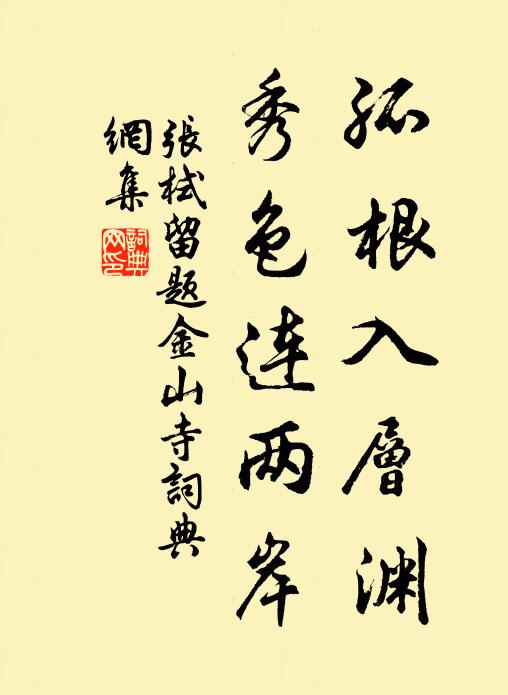 孤根入層渊
秀色连两岸
張栻留题金山寺詞典
網集
詞典
网印